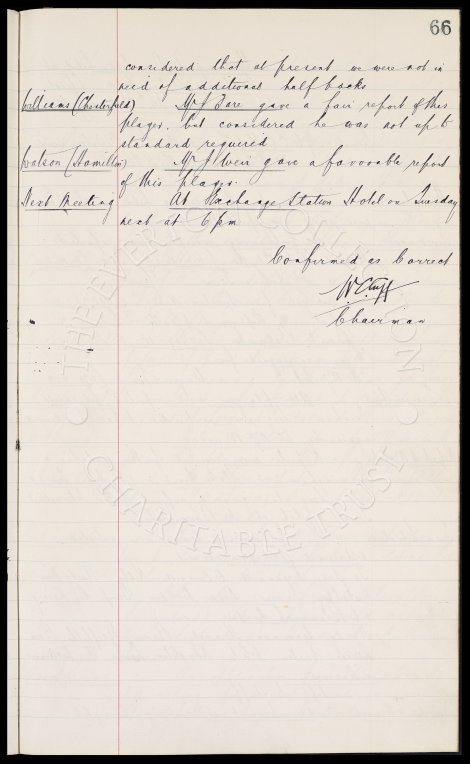 66
considered that at present we were not in
need of additional half backs
Williams (Chesterfield) Mr J Sare gave a fair report of this
player, but considered he was not up to
standard required
Watson (Hamilton) Mr J Weir gave a favorable report
of this player.
Next Meeting At Exchange Station Hotel on Tuesday
next at 6 pm
Confirmed as Correct
W.C. Cuff
Chairman
THE EVERTON COLLECTION
CHARITABLE TRUST